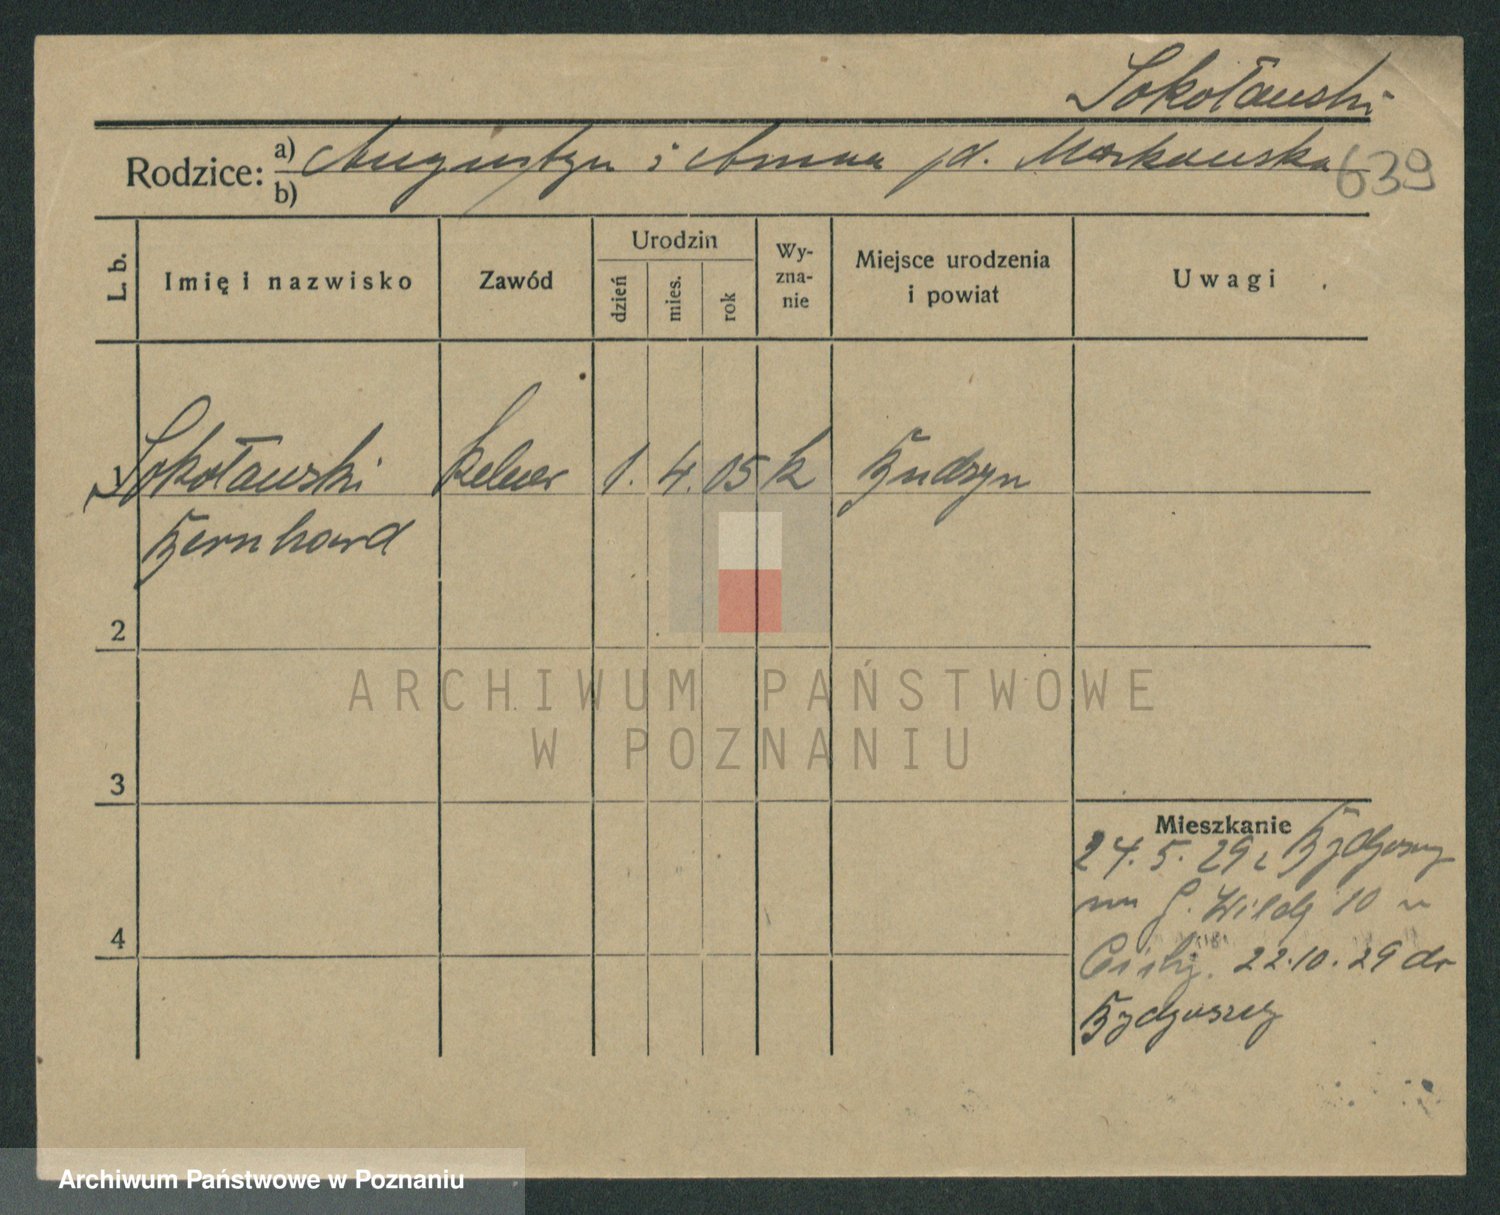 Sokołowski
Rodzice: a) Augustyn i Anna d. Markowska 639
b)
L. b. Imię i nazwisko Zawód Urodzin dzień mies. rok Wy-zna-nie Miejsce urodzenia i powiat Uwagi
1 Sokołowski kelner 1. 4. 05 k Budzyn
Bernhard
2
3
4
Mieszkanie
24. 5. 29 z Bydgoszczy
na G. Wilda 10 u
22.10.29 do
Bydgoszczy
ARCHIWUM PAŃSTWOWE
W POZNANIU
Archiwum Państwowe w Poznaniu